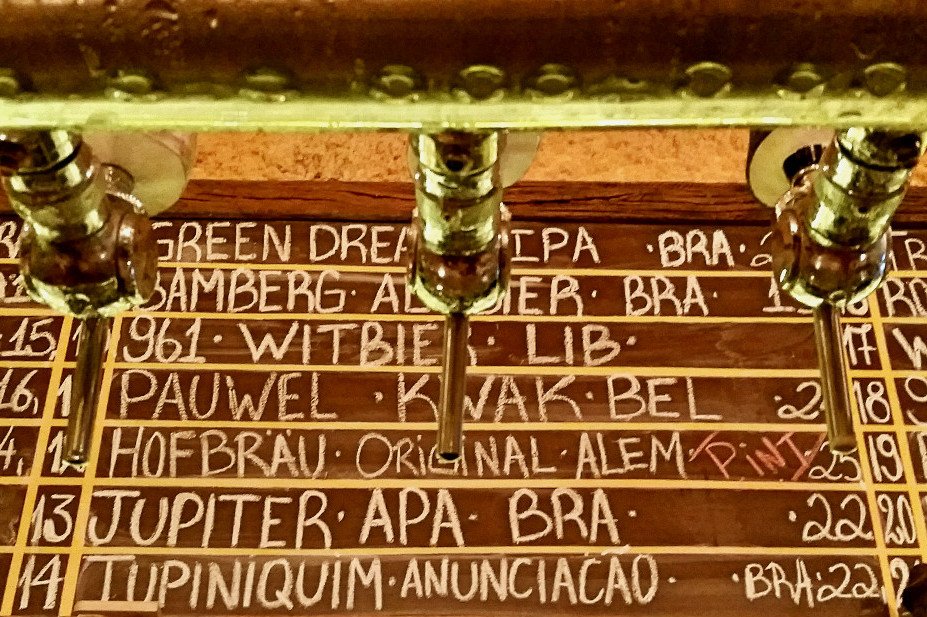 GREEN IPA · BRA ·
BAMBERG · BRA ·
15, 961 · WITBIE · LIB · 17
16, PAUWEL · KWAK · BEL 18
HOFBRÄU · ORIGINAL · ALEM · PINT 25 19
13 JUPITER · APA · BRA · · 22 20
14 TUPINIQUIM · ANUNCIAÇÃO · · BRA · 22